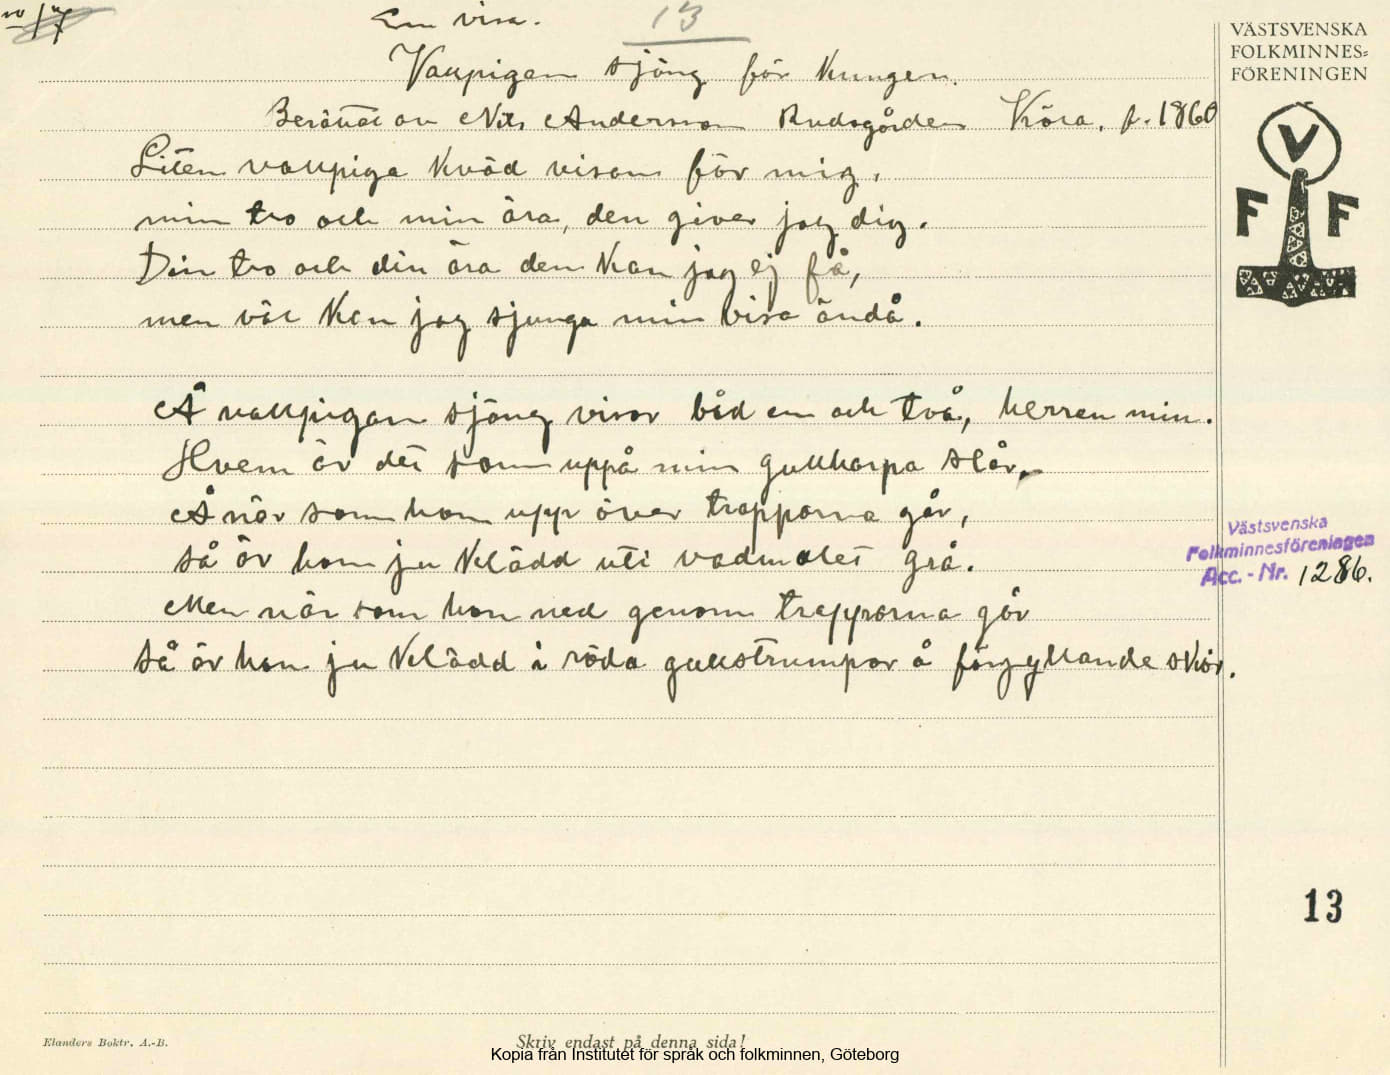 No 17
En visa.
13
Vallpigan sjöng för kungen.
Berättat av Nils Andersson Rudsgården Kröra. f. 1860
Liten vallpiga kväd visan för mig,
min tro och min ära, den giver jag dig.
Din tro och din ära den kan jag ej få,
men väl kan jag sjunga min visa ändå.
Å vallpigan sjöng visor båd en och två, herren min.
Hvem är det som uppå min gullharpa slår,
Å när som hon upp över trapporna går,
så är hon ju klädd uti vadmalet grå.
Men när som hon ned genom trapporna går
så är hon ju klädd i röda gullstrumpor å förgyllande skor.
VÄSTSVENSKA
FOLKMINNES-
FÖRENINGEN
V
F F
Västsvenska
Folkminnesföreningen
Acc. - Nr. 1286.
13
Elanders Boktr. A.-B.
Skriv endast på denna sida!
Kopia från Institutet för språk och folkminnen, Göteborg